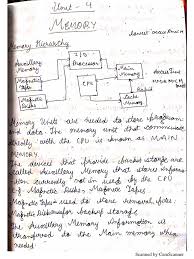 Unit - 4
MEMORY
Memory Hierarchy
I/O
Processor
Auxillary
Memory
Main
Memory
Magnetic
Tapes
CPU
Magnetic
Disks
Cache
Memory
Memory Unit are needed to store program
and data. The memory unit that communicate
directly with the CPU is known as MAIN
Memory.
The devices that provide backup storage are
called Auxillary Memory that stores
currently not in used by the CPU
Magnetic Disks, Magnetic Tapes
Magnetic Tapes used to store removal files
Magnetic Disks used for backup storage
The Auxillary Memory information is
transferred to the Main memory when
needed
Scanned by CamScanner